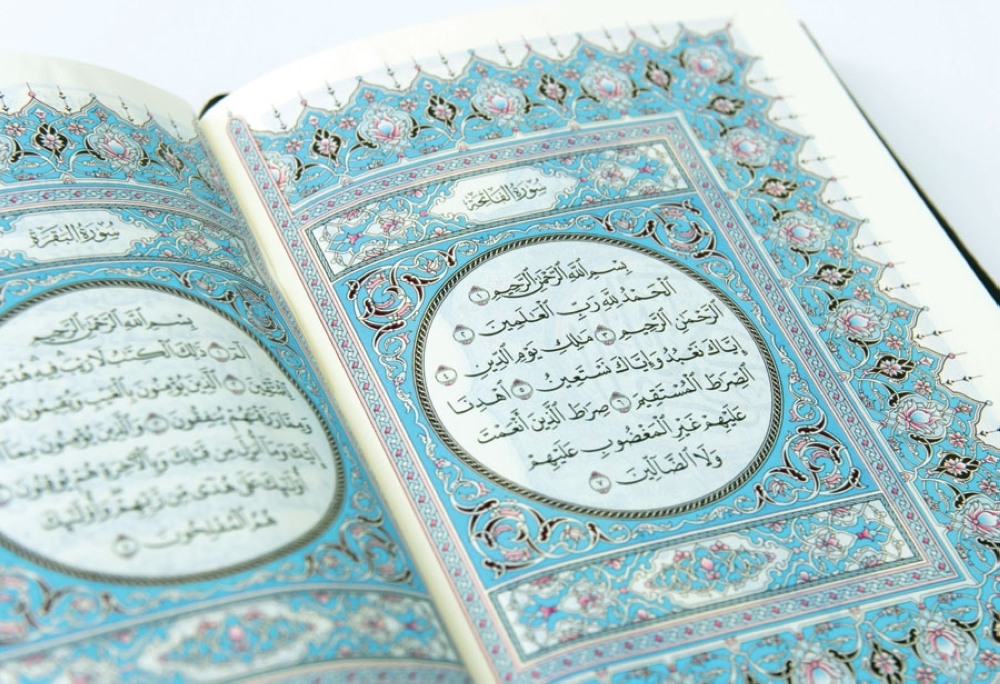 سُورَةُ الفَاتِحَةِ
بِسْمِ ٱللَّهِ ٱلرَّحْمَٰنِ ٱلرَّحِيمِ ١
ٱلْحَمْدُ لِلَّهِ رَبِّ ٱلْعَٰلَمِينَ ٢
ٱلرَّحْمَٰنِ ٱلرَّحِيمِ ٣ مَٰلِكِ يَوْمِ ٱلدِّينِ ٤
إِيَّاكَ نَعْبُدُ وَإِيَّاكَ نَسْتَعِينُ ٥ ٱهْدِنَا
ٱلصِّرَٰطَ ٱلْمُسْتَقِيمَ ٦ صِرَٰطَ ٱلَّذِينَ أَنْعَمْتَ
عَلَيْهِمْ غَيْرِ ٱلْمَغْضُوبِ عَلَيْهِمْ
وَلَا ٱلضَّآلِّينَ ٧
سُورَةُ البَقَرَةِ
بِسْمِ ٱللَّهِ ٱلرَّحْمَٰنِ ٱلرَّحِيمِ
الٓمٓ ١ ذَٰلِكَ ٱلْكِتَٰبُ لَا رَيْبَ فِيهِ هُدًى
لِّلْمُتَّقِينَ ٢ ٱلَّذِينَ يُؤْمِنُونَ بِٱلْغَيْبِ وَيُقِيمُونَ
وَمِمَّا رَزَقْنَٰهُمْ يُنفِقُونَ ٣ وَٱلَّذِينَ يُؤْمِنُونَ بِمَآ
إِلَيْكَ وَمَآ أُنزِلَ مِن قَبْلِكَ وَبِٱلْأَخِرَةِ هُمْ يُوقِنُونَ
أُو۟لَٰٓئِكَ عَلَىٰ هُدًى مِّن رَّبِّهِمْ وَأُو۟لَٰٓئِكَ
هُمُ ٱلْمُفْلِحُونَ ٥